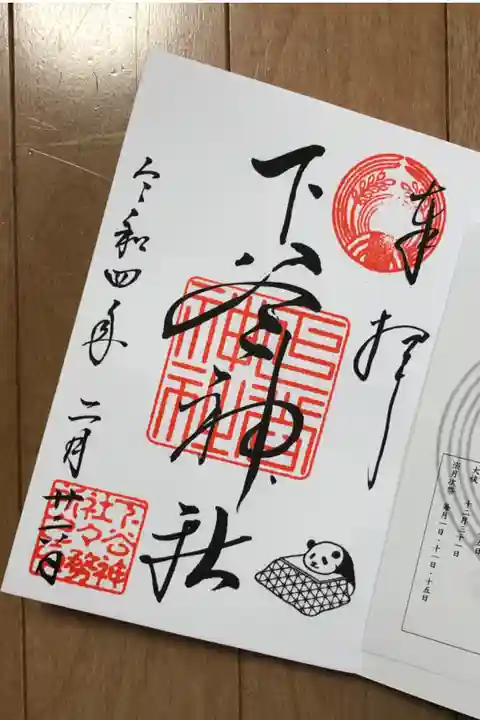 奉拝
下谷神社
令和四年 二月廿二日
下谷神
社々務
大祓 十二月三十一日
毎月一日・十五日